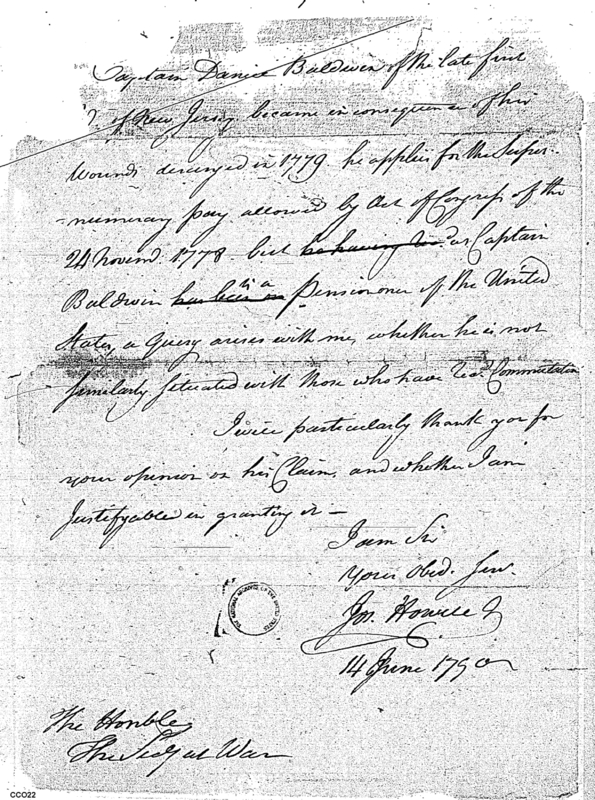 Captain Daniel Baldwin of the late first
of New Jersey became in consequence of his
wounds deranged in 1779 he applies for the Super-
-numerary pay allowed by Act of Congress of the
24 Novemr. 1778 but he having as Captain
Baldwin has been is a Pensioner of the United
States, a Query arises with me, whether he is not
similarly situated with those who have recd. Commutation
I will particularly thank you for
your opinion on his Claim, and whether I am
Justifyable in granting it —
I am Sir
Your Obed. Serv.
Jos. Howell Jr
14 June 1790
The Honble
The Secy at War
THE NATIONAL ARCHIVES OF THE UNITED STATES
CCO22